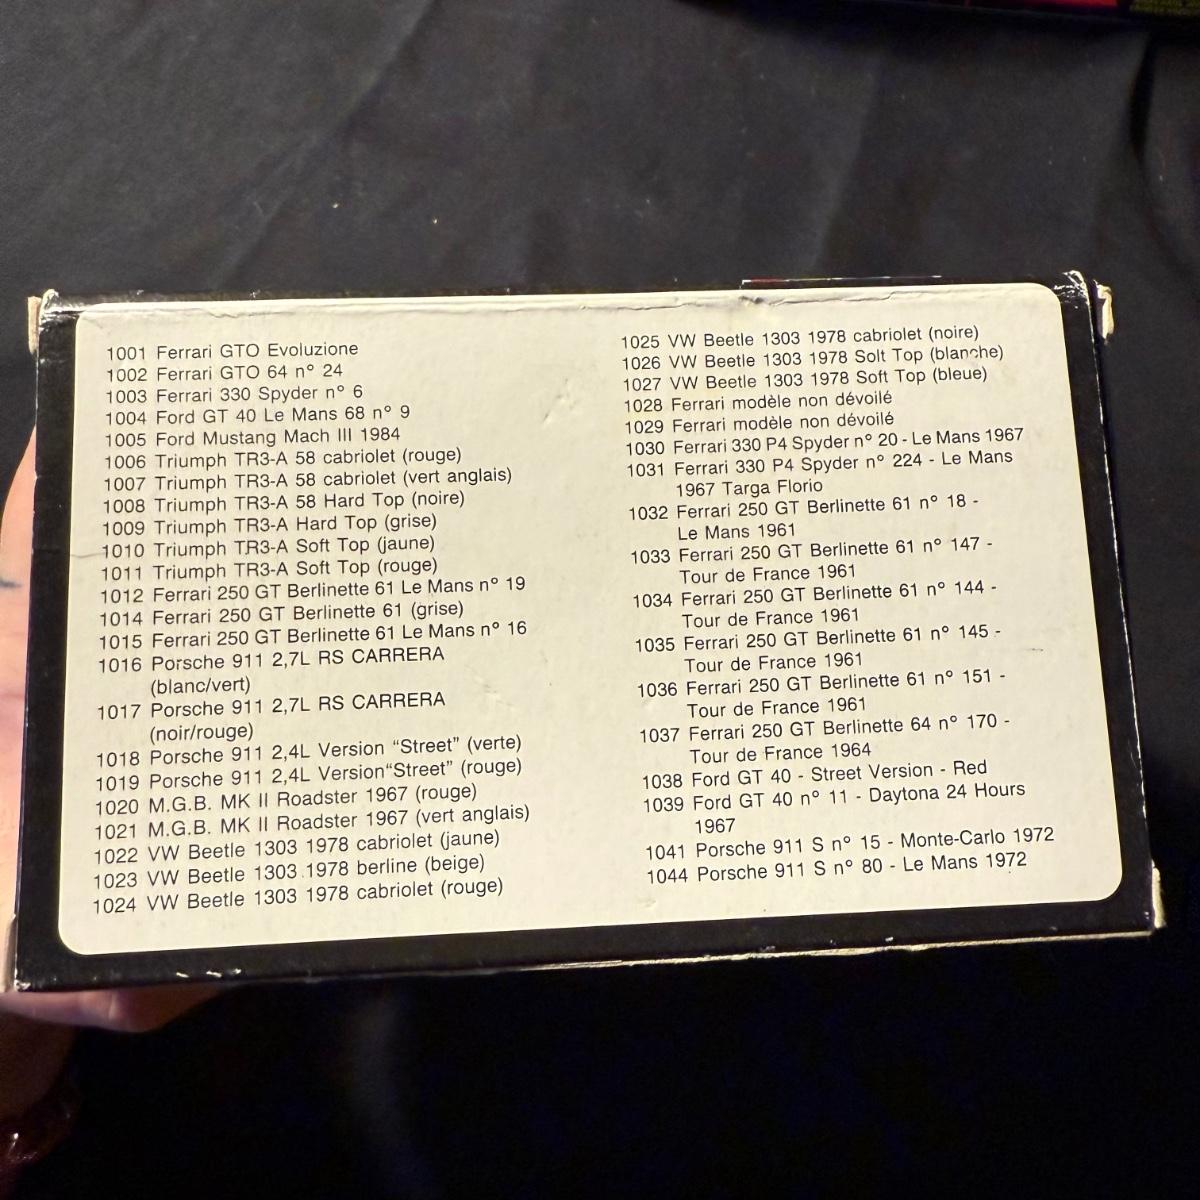 1001 Ferrari GTO Evoluzione
1002 Ferrari GTO 64 n° 24
1003 Ferrari 330 Spyder n° 6
1004 Ford GT 40 Le Mans 68 n° 9
1005 Ford Mustang Mach III 1984
1006 Triumph TR3-A 58 cabriolet (rouge)
1007 Triumph TR3-A 58 cabriolet (vert anglais)
1008 Triumph TR3-A 58 Hard Top (noire)
1009 Triumph TR3-A Hard Top (grise)
1010 Triumph TR3-A Soft Top (jaune)
1011 Triumph TR3-A Soft Top (rouge)
1012 Ferrari 250 GT Berlinette 61 Le Mans n° 19
1014 Ferrari 250 GT Berlinette 61 (grise)
1015 Ferrari 250 GT Berlinette 61 Le Mans n° 16
1016 Porsche 911 2,7L RS CARRERA
(blanc/vert)
1017 Porsche 911 2,7L RS CARRERA
(noir/rouge)
1018 Porsche 911 2,4L Version “Street” (verte)
1019 Porsche 911 2,4L Version“Street” (rouge)
1020 M.G.B. MK II Roadster 1967 (rouge)
1021 M.G.B. MK II Roadster 1967 (vert anglais)
1022 VW Beetle 1303 1978 cabriolet (jaune)
1023 VW Beetle 1303 1978 berline (beige)
1024 VW Beetle 1303 1978 cabriolet (rouge)
1025 VW Beetle 1303 1978 cabriolet (noire)
1026 VW Beetle 1303 1978 Solt Top (blanche)
1027 VW Beetle 1303 1978 Soft Top (bleue)
1028 Ferrari modèle non dévoilé
1029 Ferrari modèle non dévoilé
1030 Ferrari 330 P4 Spyder n° 20 - Le Mans 1967
1031 Ferrari 330 P4 Spyder n° 224 - Le Mans
1967 Targa Florio
1032 Ferrari 250 GT Berlinette 61 n° 18 -
Le Mans 1961
1033 Ferrari 250 GT Berlinette 61 n° 147 -
Tour de France 1961
1034 Ferrari 250 GT Berlinette 61 n° 144 -
Tour de France 1961
1035 Ferrari 250 GT Berlinette 61 n° 145 -
Tour de France 1961
1036 Ferrari 250 GT Berlinette 61 n° 151 -
Tour de France 1961
1037 Ferrari 250 GT Berlinette 64 n° 170 -
Tour de France 1964
1038 Ford GT 40 - Street Version - Red
1039 Ford GT 40 n° 11 - Daytona 24 Hours
1967
1041 Porsche 911 S n° 15 - Monte-Carlo 1972
1044 Porsche 911 S n° 80 - Le Mans 1972